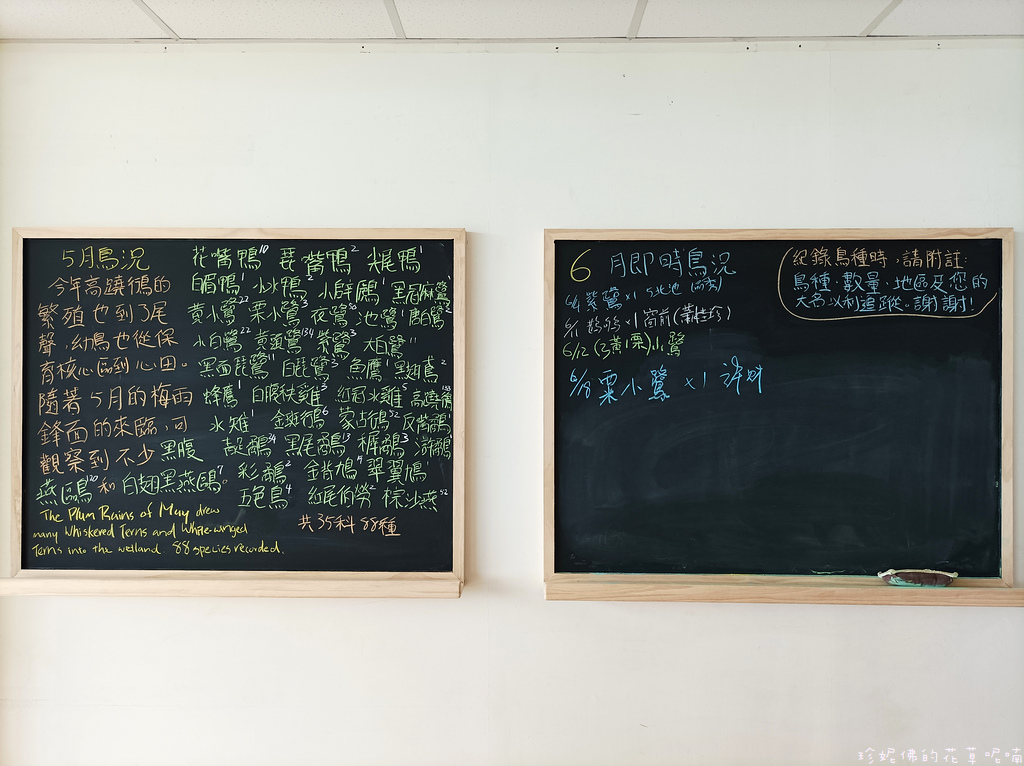 5月鳥況
今年高蹺鴴的
繁殖也到了尾
聲,幼鳥也從保
育核心區到心田。
隨著5月的梅雨
鋒面的來臨,可
觀察到不少黑腹
燕鷗120和白翅黑燕鷗7。
The Plum Rains of May drew
many Whiskered Terns and White-winged
Terns into the wetland. 88 species recorded.
花嘴鴨10 琵嘴鴨2 尖尾鴨1
白眉鴨1 小水鴨2 小鸊鷉1 黑冠麻鷺
黃小鷺22 栗小鷺3 夜鷺 池鷺1 唐白鷺
小白鷺22 黃頭鷺134 紫鷺2 大白鷺11
黑面琵鷺11 白琵鷺2 魚鷹1 黑翅鳶2
蜂鷹1 白腹秧雞3 紅冠水雞5 高蹺鴴
水雉1 金斑鴴6 蒙古鴴52 反嘴鴴1
鷸34 黑尾鷸13 裸鷸3 鷸1
彩鷸2 金背鳩4 翠翼鳩1
五色鳥4 紅尾伯勞2 棕沙燕52
共35科 88種
6月即時鳥況
紫鷺x1
x1 窗前
6/12 小鷺
栗小鷺 x1
紀錄鳥種時,請附註:
鳥種、數量、地區及您的
大名以利追蹤。謝謝!
珍妮佛的花草呢喃